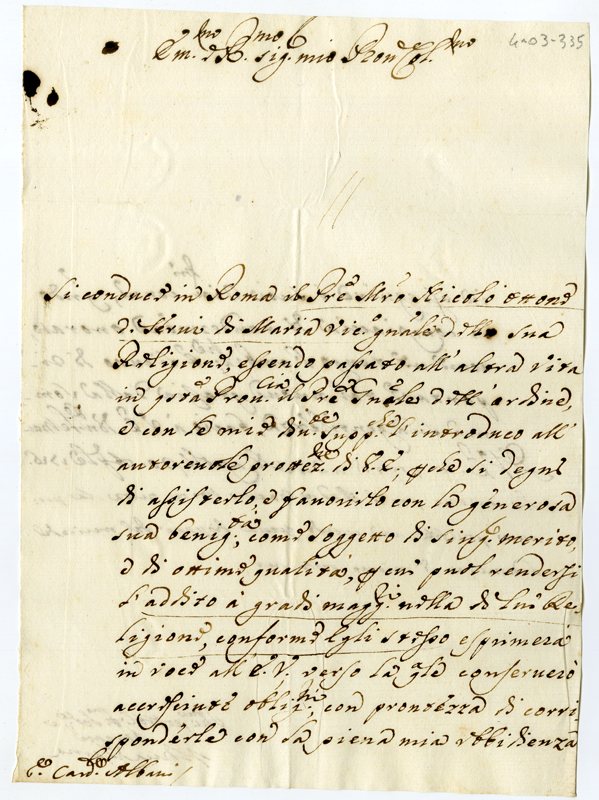 4-03-335
Em.mo e R.mo sig.r mio Pron Col.mo
Si conduce in Roma il Prē Mr̄o Nicolò Ottone
d. Servi di Maria Vic.o gnāle della sua
Religione, essendo passato all' altra vita
in qstā Prou.cia il Prē Gnāle dell' ordine,
e con le mie diu.te supp.che l'introduco all'
autoreuole protter.ne di V.E., pche si degni
di assisterlo, e fauorirlo con la generosa
sua benig.tà, come soggetto di sing. merito,
e di ottime qualità, p cui puol rendersi
l'addito à gradi magg.ri nella di lui Re-
ligione, conforme Egli stesso esprimerà
in voce all' E.V. verso la qle conseruerò
accresciute oblig.ni, con prontezza di corri-
sponderle con la piena mia obbidienza
E.o Card.le Albani